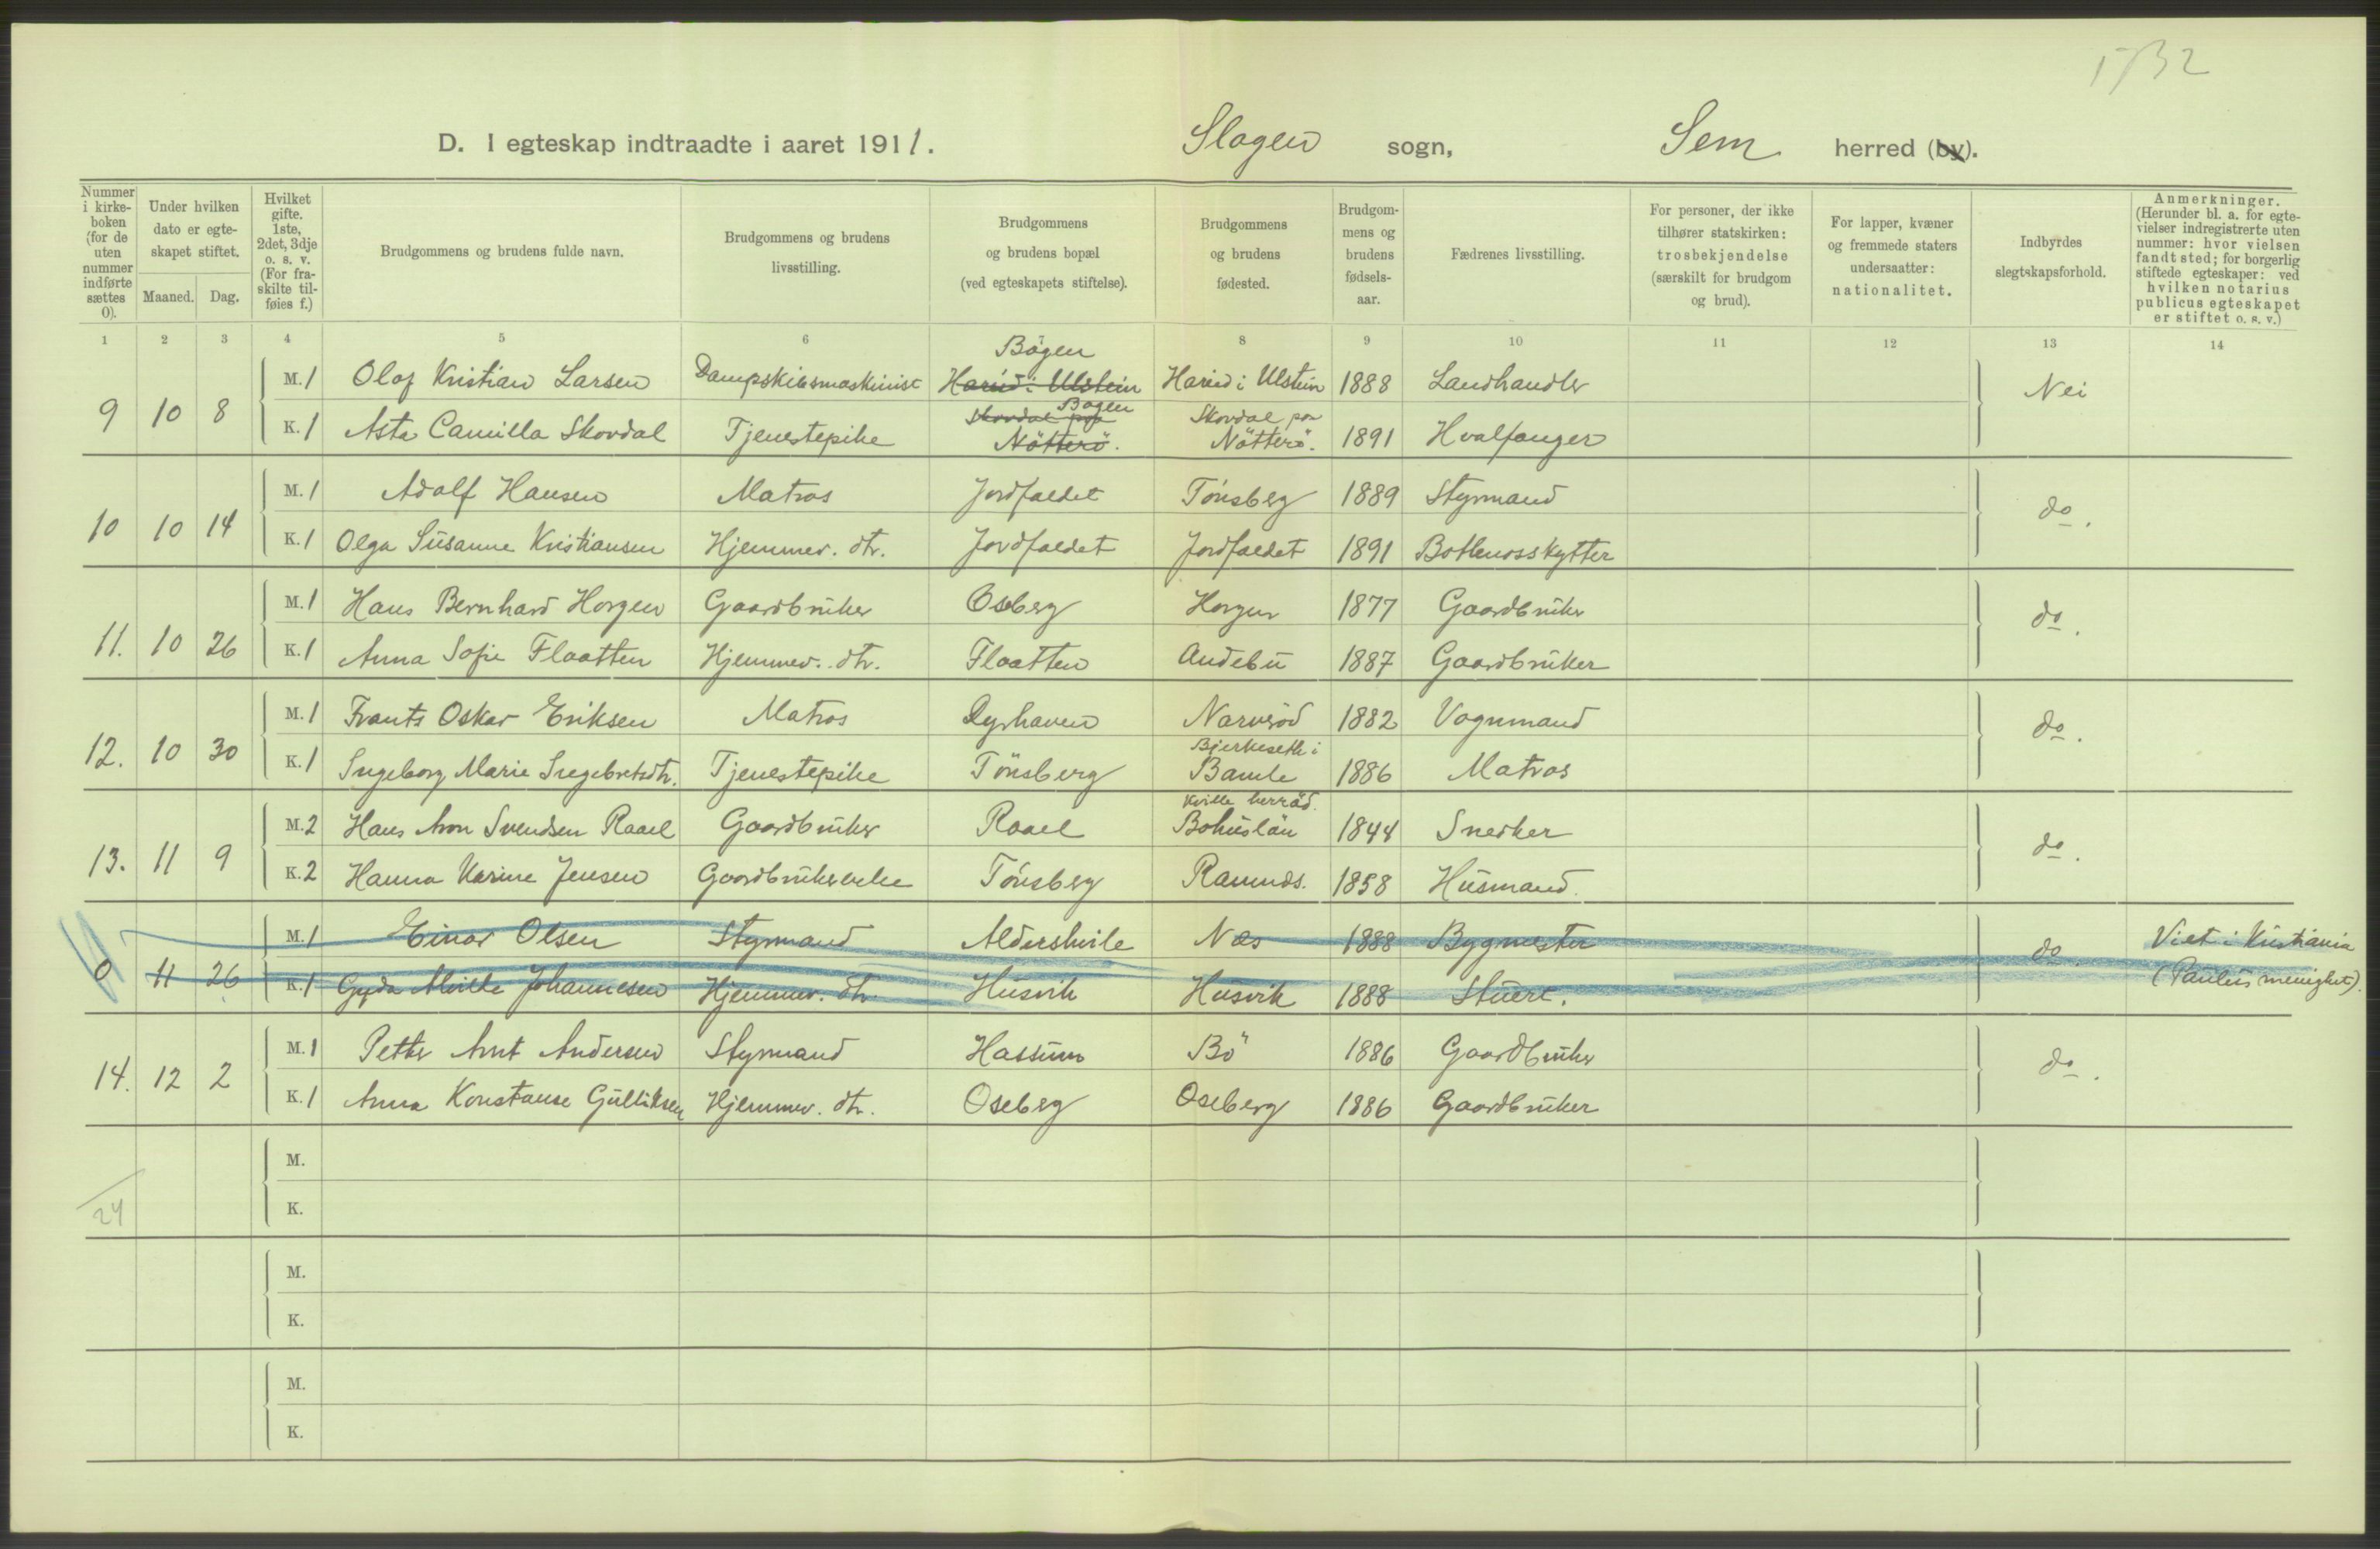 1732
D. I egteskap indtraadte i aaret 1911. Slagen sogn, Sem herred (by).
Nummer i kirkeboken (for de uten nummer indførte sættes 0).
Under hvilken dato er egteskapet stiftet.
Maaned. Dag.
Hvilket gifte. 1ste, 2det, 3dje o. s. v. (For fraskilte tilføies f.)
Brudgommens og brudens fulde navn.
Brudgommens og brudens livsstilling.
Brudgommens og brudens bopæl (ved egteskapets stiftelse).
Brudgommens og brudens fødested.
Brudgommens og brudens fødselsaar.
Fædrenes livsstilling.
For personer, der ikke tilhører statskirken: trosbekjendelse (særskilt for brudgom og brud).
For lapper, kvæner og fremmede staters undersaatter: nationalitet.
Indbyrdes slegtskapsforhold.
Anmerkninger. (Herunder bl. a. for egtevielser indregistrerte uten nummer: hvor vielsen fandt sted; for borgerlig stiftede egteskaper: ved hvilken notarius publicus egteskapet er stiftet o. s. v.)
1 2 3 4 5 6 7 8 9 10 11 12 13 14
9 10 8 M. 1 Olaf Kristian Larsen Dampskibsmaskinist Bögen Hareid i Ulstein Hareid i Ulstein 1888 Landhandler Nei
K. 1 Asta Camilla Skovdal Tjenestepike Skovdal paa Nötterö. Bögen Skovdal paa Nötterö. 1891 Hvalfanger
10 10 14 M. 1 Adolf Hansen Matros Jordfaldet Tönsberg 1889 Styrmand do.
K. 1 Olga Susanne Kristiansen Hjemmev. dtr. Jordfaldet Jordfaldet 1891 Bottlenosskytter
11. 10 26 M. 1 Hans Bernhard Horgen Gaardbruker Oseberg Horgen 1877 Gaardbruker do.
K. 1 Anna Sofie Flaatten Hjemmev. dtr. Flaatten Andebu 1887 Gaardbruker
12. 10 30 M. 1 Frants Oskar Eriksen Matros Dyrhaven Narveröd 1882 Vognmand do.
K. 1 Ingeborg Marie Ingebretsdtr. Tjenestepike Tönsberg Bjerkeseth i Bamle 1886 Matros
13. 11 9 M. 2 Hans Aron Svendsen Raael Gaardbruker Raael Kville herräd. Bohuslän 1844 Snedker do.
K. 2 Hanna Karine Jensen Gaardbrukerenke Tönsberg Ramnds. 1858 Husmand.
0 11 26 M. 1 Einar Olsen Styrmand Aldershvile Næs 1888 Bygmester do. Viet i Kristiania
K. 1 Gyda Alvilde Johannesen Hjemmev. dtr Husvik Husvik 1888 Stuert. (Paulus menighet).
14. 12 2 M. 1 Petter Arnt Andersen Styrmand Hassum Bö 1886 Gaardbruker do.
K. 1 Anna Konstanse Gulliksen Hjemmev. dtr. Oseberg Oseberg 1886 Gaardbruker
M.
24
K.
M.
K.
M.
K.